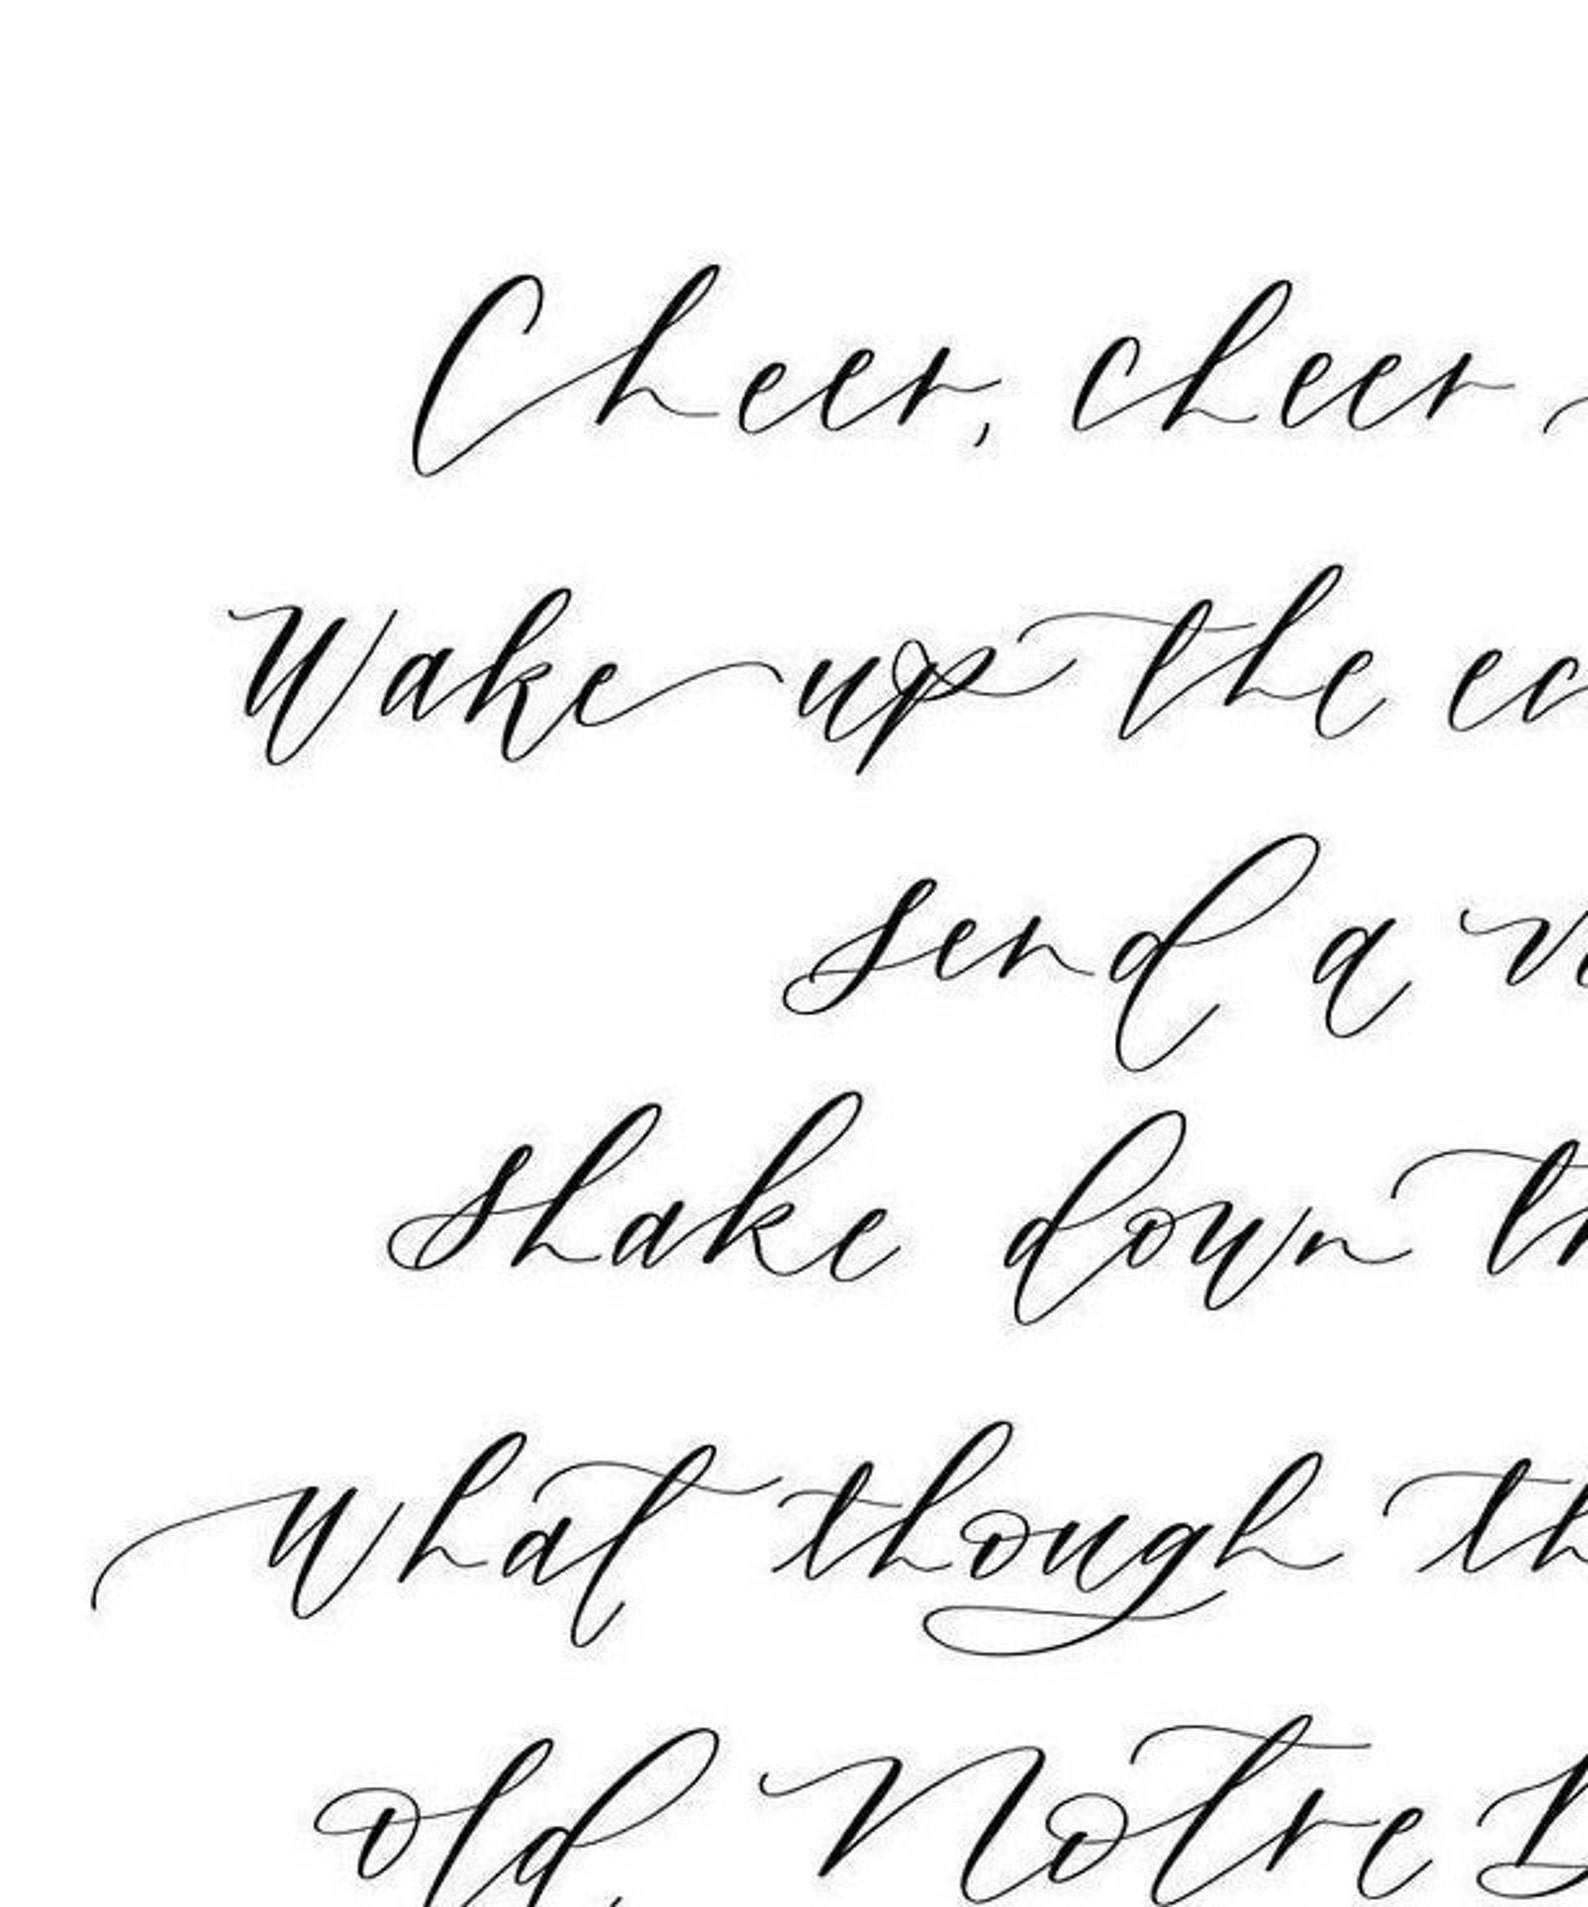 Cheer, cheer
Wake up the
send a
shake down
what though
old Notre